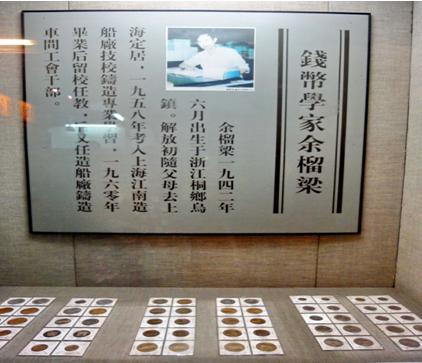 錢幣學家余榴梁
余榴梁一九四二年
六月出生于浙江桐鄉烏
鎮。解放初隨父母去上
海定居，一九五八年考入上海江南造
船廠技校鑄造專業學習，一九六零年
畢業后留校任教，又任造船廠鑄造
車間工會干部。